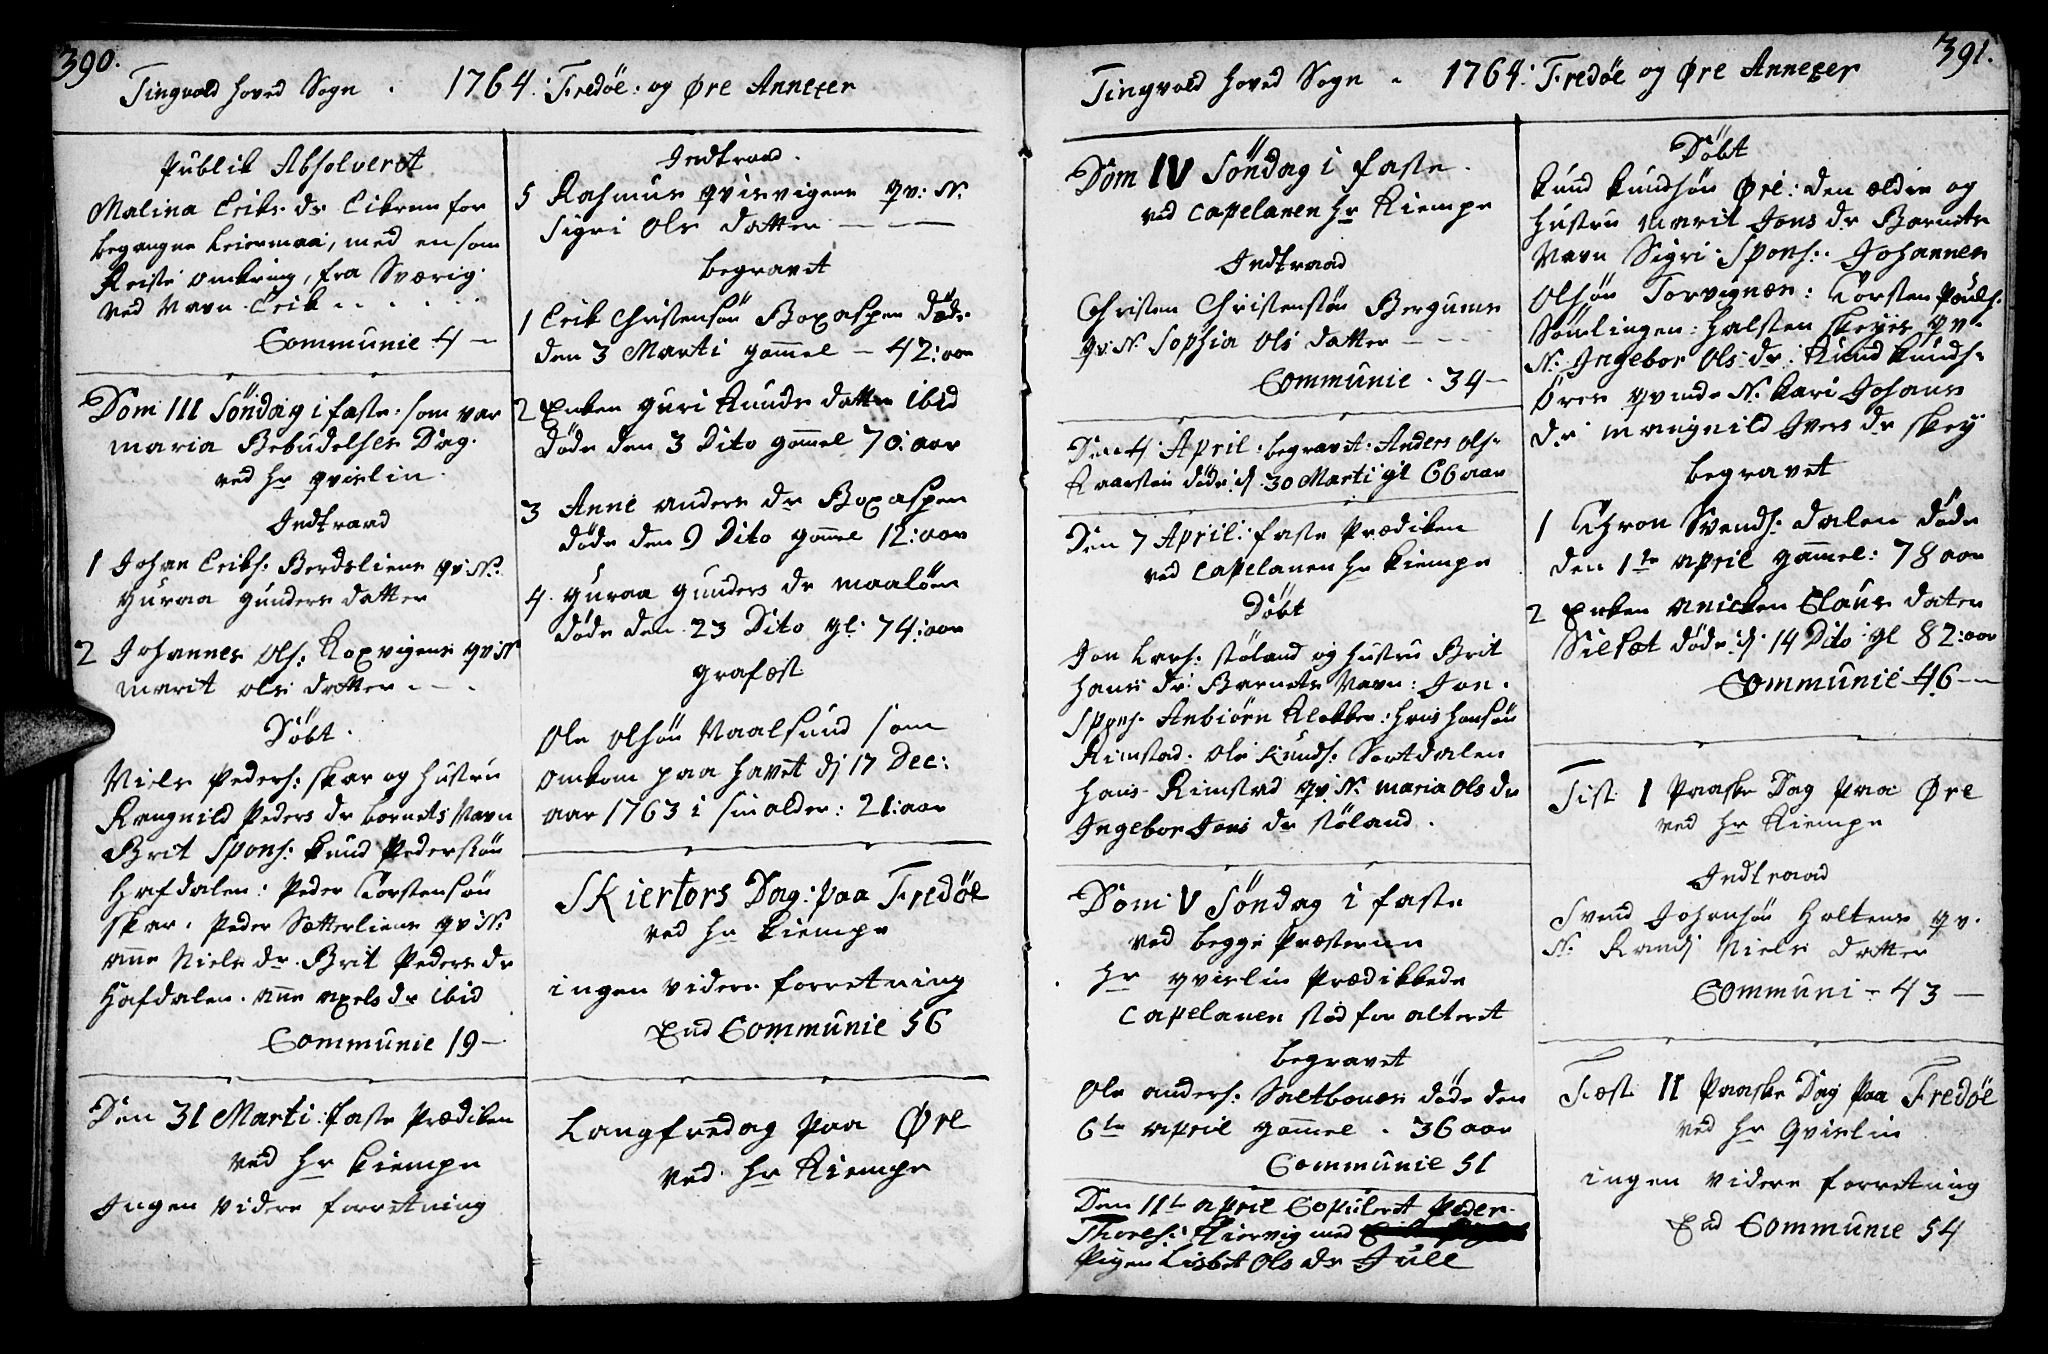 390.
Tingvold hoved Sogn . 1764: Fredöe: og Øre Annexer
Publik Absolveret
Malina Eriks dr
begangne Leiermaal, med en som
Reiste omkring, fra Sværig
ved Navn Erik . . . . .
Communie 4 –
Dom III Söndag i faste: som var
maria Bebudelses Dag.
ved hr qvislin
Indtraad
1 Johan Eriks: Berdsliens qv: N:
guraa gunders datter
2 Johannes Ols: Koxvigens qv: N
marit ols datter . – .
Döbt .
Niels Peders: skar og hustru
Rangnild Peders dr barnets Navn
Brit Spons: knud Pedersön
hafdalen: Peder Torstensön
skar. Peder Sætterliens qv: N:
ane Niels dr. Brit Peders dr
hafdalen. ane axels dr ibid
Communie 19 –
Den 31 Marti: faste Prædiken
ved hr kiempe
Ingen videre forretning
Indtraad.
5 Rasmus qvisvigens qv: N:
Sigri Ols datter – – –
begravet
1 Erik Christensön Boxaspen död
den 3 Marti gammel – 42: aar
2 Enken guri knuds datter ibid
döde den 3 Dito gammel 70: aar
3 Anne anders dr Boxaspen
döde den 9 Dito gammel 12: aar
4. guraa gunders dr maalöen
döde den 23 Dito gl: 74: aar
grafæst
Ole olsön Vaalsund som
omkom paa havet dj 17 Dec:
aar 1763 i sin alder: 21: aar
Skiertors Dag: paa Fredöe
ved hr kiempe
ingen videre forretning
End Communie 56
Langfredag paa Øre
ved hr kiempe
391.
Tingvold hoved Sogn – 1764: Fredöe og Øre Annexer
Dom IV Söndag i faste.
ved capelanen hr kiempe
Indtraad
Christen Christensön Bergums
qv: N: Sophia Ols datter – – –
Communie . 34 –
Den 4 April: begravet: Anders Ols:
döde: dj 30 Marti gl 66 aar
Den 7 April: faste Prædiken
ved capelanen hr kiempe
Döbt
Jon Lars: stöland og hustru Brit
hans dr: Barnets Navn: Jon.
Spons: Anbiörn Klokker: hans hansön
Rimstad. Ole knuds: Sortdalen
hans Rimstad qv: N: maria Ols dr
Ingebor Jons dr stöland.
Dom: V Söndag i faste
ved begge Præsterne
hr qvislin Prædikkede
Capelanen stod for alteret
begravet
Ole anders: Saltbones döde den
6te april gammel . 36 aar
Communie 51
Den 11te april Copuleret Peder
Thores: med
Pigen Lisbet Ols dr Jull
Döbt
knud knudsön Øre: den ældre og
hustru marit Jons dr Barnets
Navn Sigri Spons: Johannes
Olsön Torvignæs: Torsten Pouls:
Sömlingen: halsten skeyes qv:
N: Ingebor Ols dr: knud knuds:
Øres qvinde N: kari Johans
dr: mangnild Ivers dr skey
begravet
1 Thron Svends: dalen döde
den 1te april gammel: 78 aar
2 Enken anicken Claus daten
Silset döde: dj 14 Dito gl 82: aar
Communie 46 –
Fest: I Paaske Dag paa Øre
ved hr kiempe
Indtraad
Svend Johansön holtens qv:
N: Randj Niels datter
Communi – 43 –
Fæst II Paaske Dag paa Fredöe
ved hr qvislin
ingen videre forretning
End Communie 54